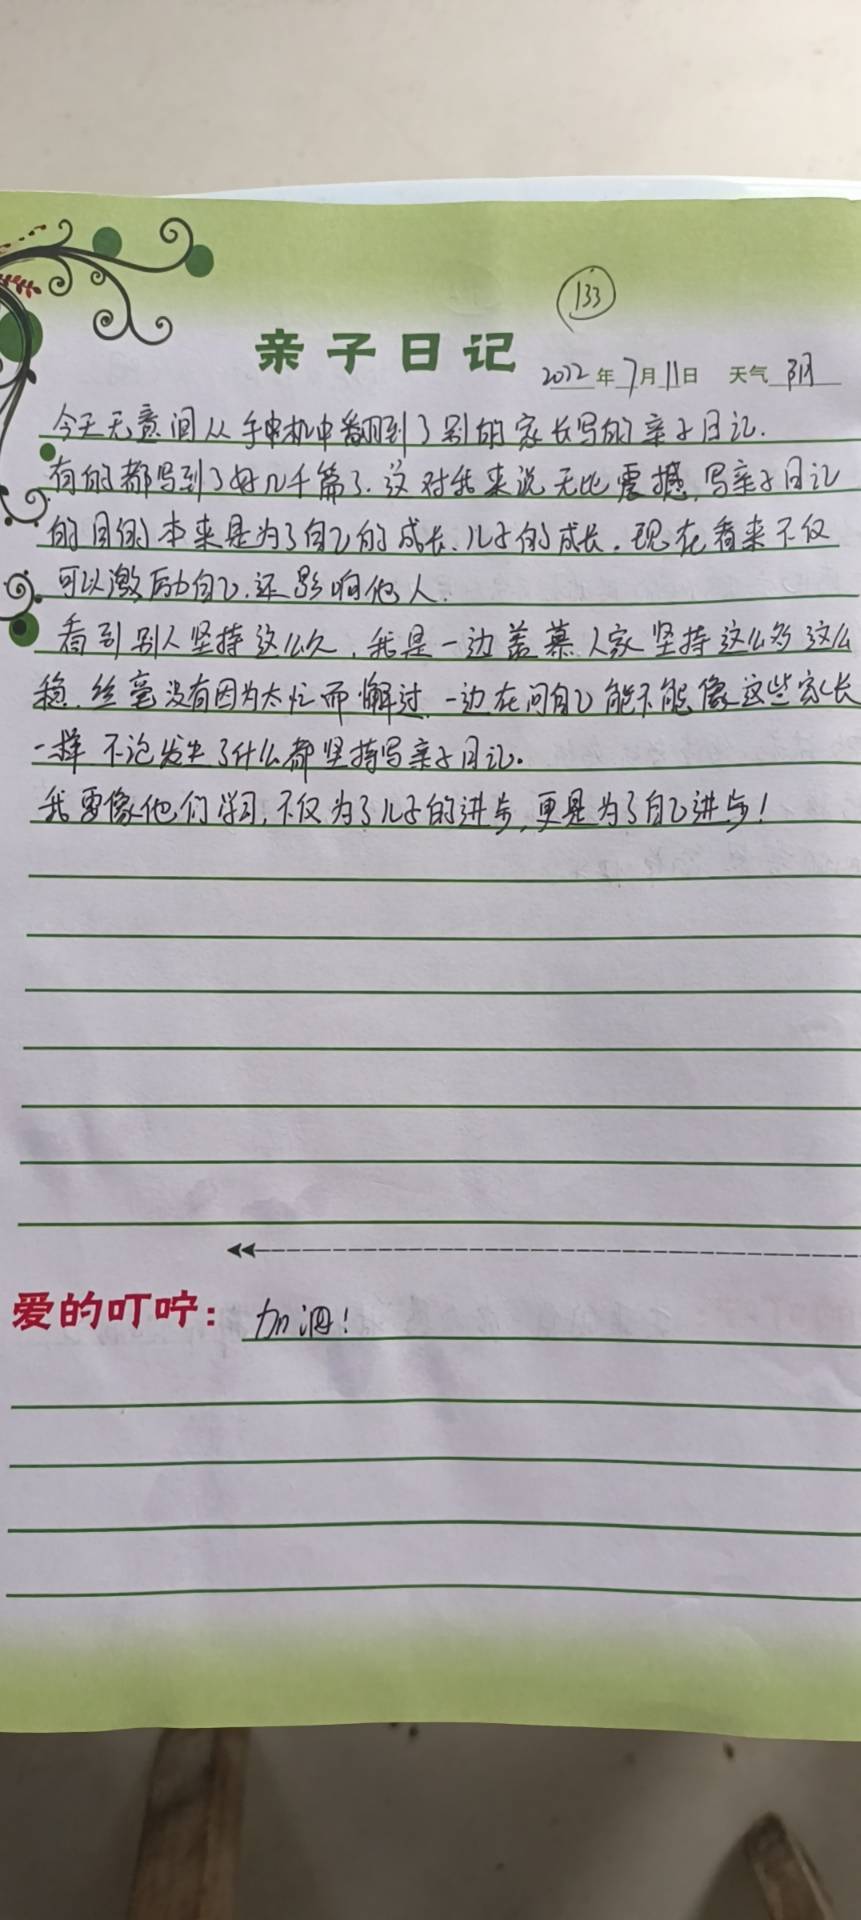 133
亲子日记
2022年7月11日 天气 阴
今天无意间从手机中翻到了别的家长写的亲子日记.
有的都写到了好几千篇了.这对我来说无比震撼,写亲子日记
的目的本来是为了自己的成长、儿子的成长.现在看来不仅
可以激励自己.还影响他人.
看到别人坚持这么久,我是一边羡慕人家坚持这么多这么
稳.丝毫没有因为太忙而懈过.一边在问自己能不能像这些家长
一样不论发生了什么都坚持写亲子日记。
我要像他们学习,不仅为了儿子的进步,更是为了自己进步!
爱的叮咛:加油!